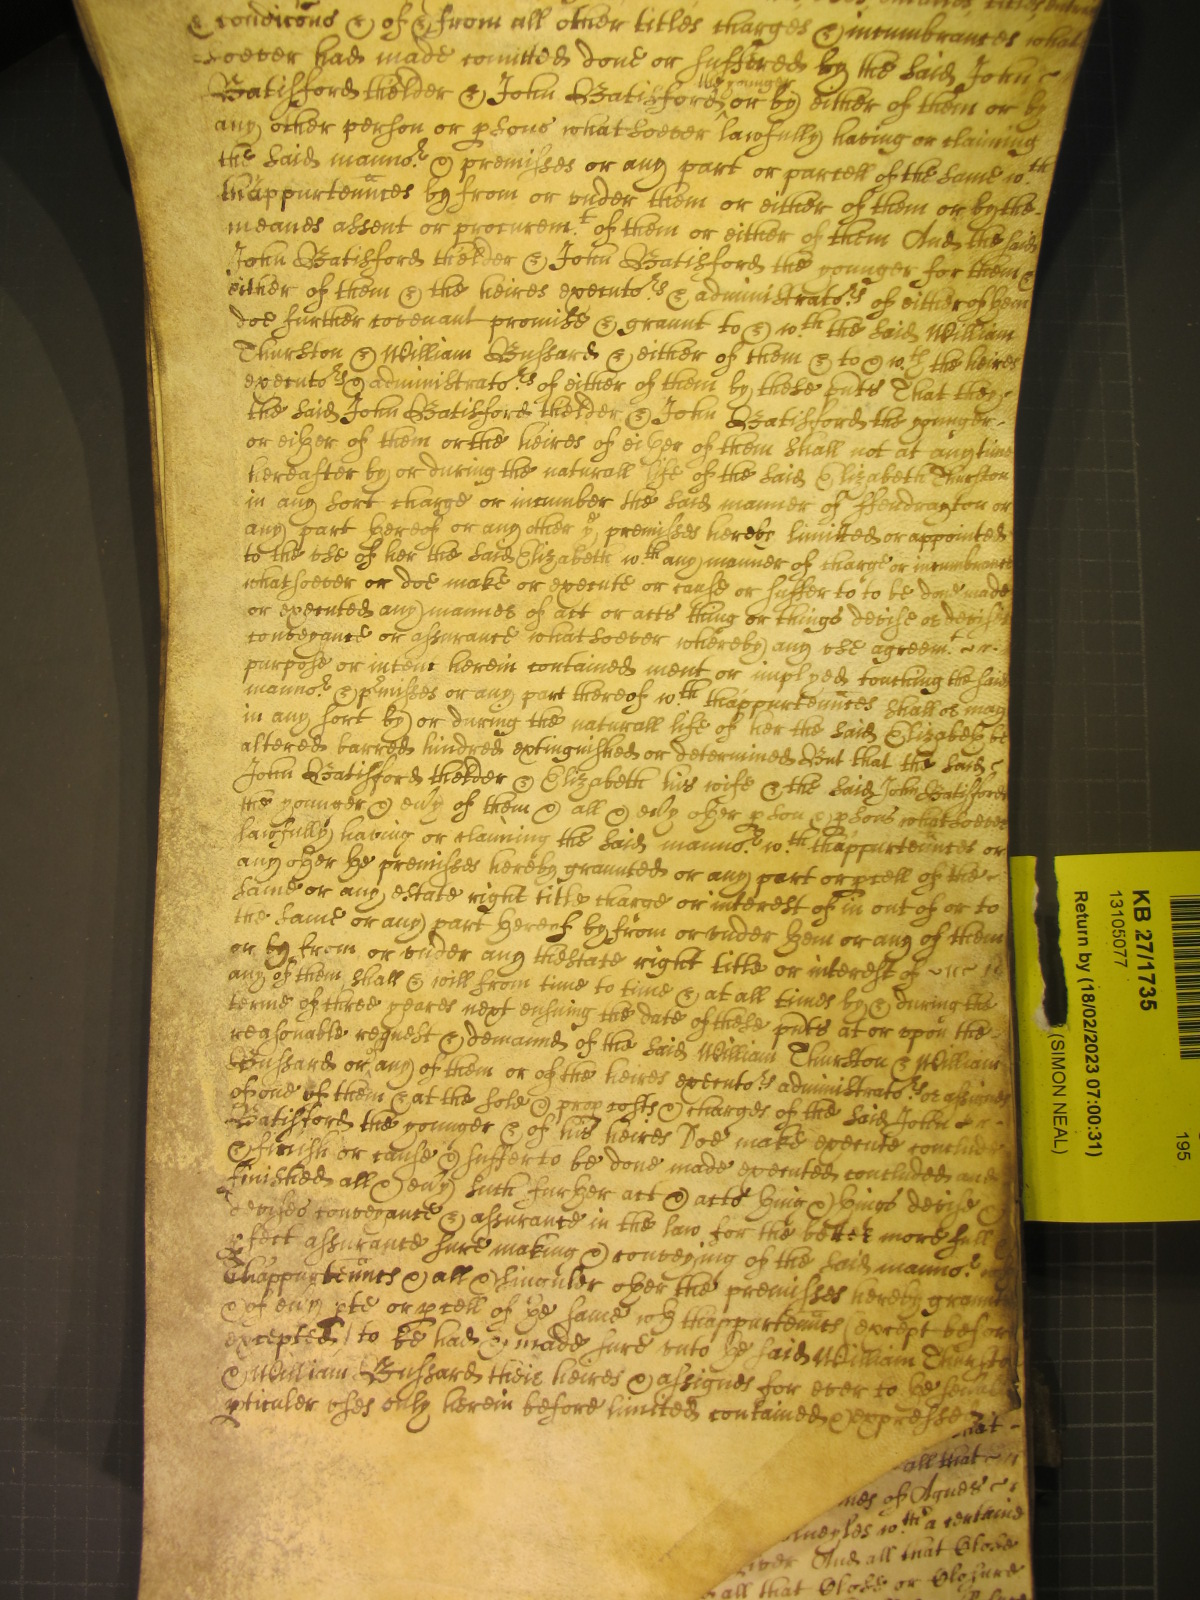 & condicons & of & from all other titles charges & incumbrances what
soever had made comitted done or suffered by the said John
Batisford thelder & John Batisford the younger or by either of them or by
any other person or psons whatsoever lawfully having or claiming
the said manno.r & premisses or any part or parcell of the same w.th
thappurtennces by from or under them or either of them or by the
meanes assent or procurem.t of them or either of them And the said
John Batisford thelder & John Batisford the younger for them &
either of them & the heires executo.rs & administrato.rs of either of them
doe further covenant promise & graunt to & w.th the said William
Thurston & William Bussard & either of them & to & w.th the heires
executo.rs & administrato.rs of either of them by these pnts That they
the said John Batisford thelder & John Batisford the younger
or either of them or the heires of either of them shall not at any time
hereafter by or during the naturall life of the said Elizabeth Thurston
in any sort charge or incumber the said manner of ffendrayton or
any part hereof or any other ye premisses hereby limitted or appointed
to the use of her the said Elizabeth w.th any manner of charge or incumbrance
whatsoever or doe make or execute or cause or suffer to to be done made
or executed any manner of act or acts thing or things devise or devises
conveyance or assurance whatsoever whereby any use agreem.t
purpose or intent herein contained ment or implyed touching the said
manno.r & pmisses or any part thereof w.th thappurtennces shall or may
in any sort by or during the naturall life of her the said Elizabeth be
altered barred hindred extinguished or determined But that the said
John Batisford thelder & Elizabeth his wife & the said John Batisford
the younger & evy of them & all & evy other pson & psons whatsoever
lawfully having or claiming the said manno.r w.th thappurtennces or
any other the premisses hereby graunted or any part or pcell of the
same or any estate right title charge or interest of in out of or to
the same or any part hereof by from or under them or any of them
or by from or under any thestate right title or interest of
any of them shall & will from time to time & at all times by & during the
terme of three yeares next ensuing the date of these pnts at or upon the
reasonable request & demannd of the said William Thurston & William
Bussard or any of them or of the heires executo.rs administrato.rs or assignes
of one of them & at the sole & prop costs & charges of the said John
Batisford the younger & of his heires Doe make execute conclude
& finish or cause & suffer to be done made executed concluded and
finished all & evy such further act & acts thing & things devise &
devises conveyance & assurance in the law for the better more full &
pfect assurance sure making & conveying of the said manno.r
thappurtennces & all & singuler other the premisses hereby graunted
& of evy pte or pcell of ye same wth thappurtennces (except before
excepted) to be had & made sure unto ye said William Thurston
& William Bussard their heires & assignes for ever to the
pticuler uses only herein before limited contained & expressed
all that
mes of Agnes
w.th a certaine
And all that Close
all that Close or Closure
KB 27/1735
13105077
Return by (18/02/2023 07:00:31)
(SIMON NEAL)
195